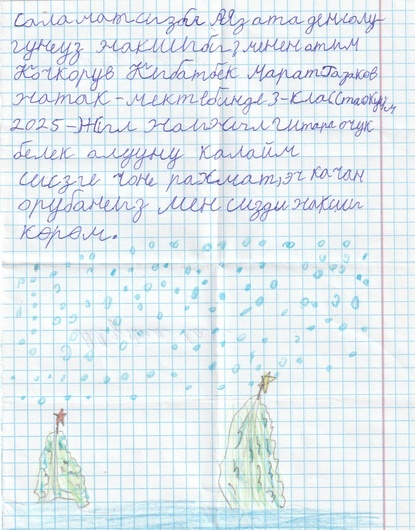 Саламатсызбы Аяз ата денсолу-
гунеуз жакшыбы, менен атым
Кочкоров Кубатбек Марат Казаков
жатак-мектебинде 3-класста окуйм
2025-Жыл жаңы жылга гитара очук
белек алууну калайм
сисзге чоңе рахмат, эч качан
орубанеыз мен сизди жакшы
көрөм.